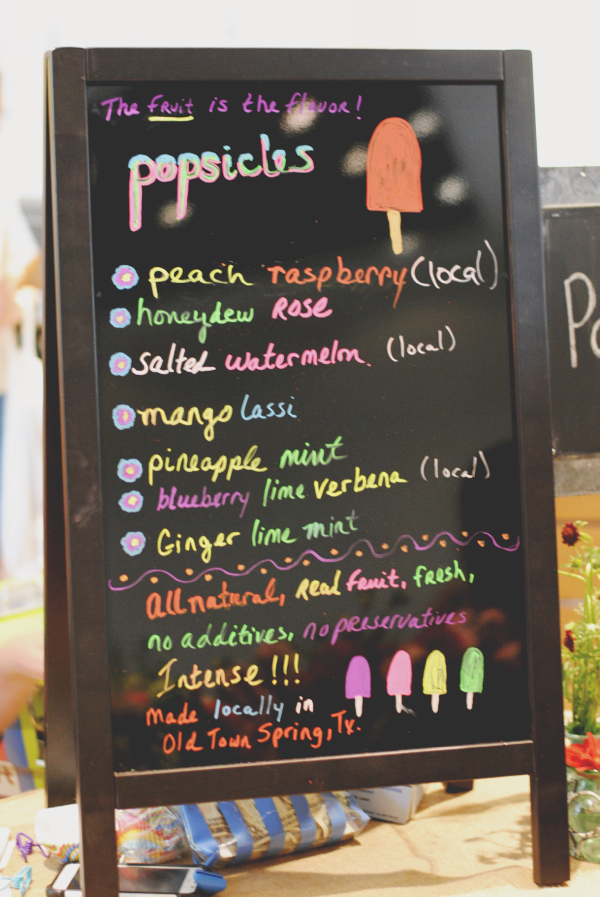 The fruit is the flavor!
popsicles
peach raspberry (local)
honeydew Rose
salted watermelon. (local)
mango lassi
pineapple mint
blueberry lime verbena (local)
Ginger lime mint
All natural, real fruit, fresh,
no additives, no preservatives
Intense!!!
made locally in
Old Town Spring, Tx.